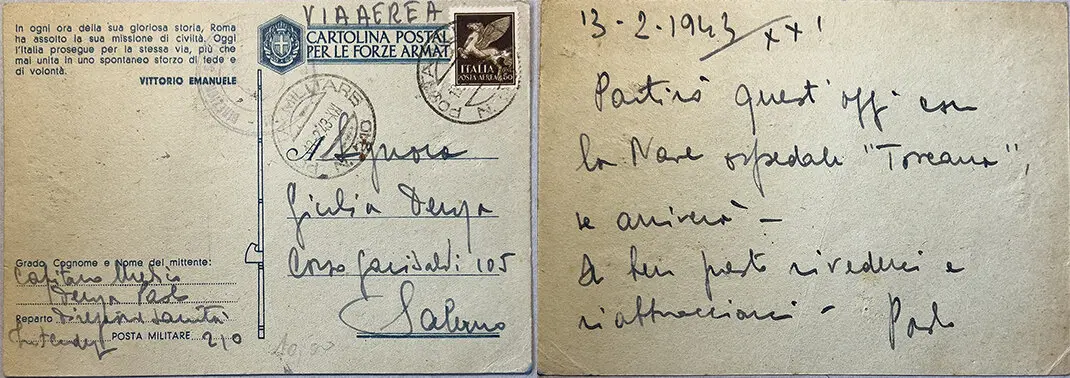 In ogni ora della sua gloriosa storia, Roma
ha assolto la sua missione di civiltà. Oggi
l'Italia prosegue per la stessa via, più che
mai unita in uno spontaneo sforzo di fede e
di volontà.
VITTORIO EMANUELE
VIA AEREA
CARTOLINA POSTAL
PER LE FORZE ARMAT
ITALIA
POSTA AEREA
POSTA
MILITARE
Signora
Giulia Denza
Corso Garibaldi 105
Salerno
Grado Cognome e Nome del mittente:
Capitano Medico
Denza Paolo
Reparto Direzione Sanità
Intendenza POSTA MILITARE 210
13-2-1943 XXI
Partirò quest'oggi con
la Nave ospedale "Toscana",
se arriverà -
A ben presto rivederci e
riabbracciarci - Paolo